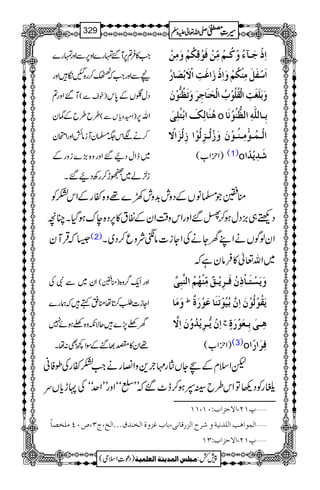 سیرتِ مصطفیٰ صلی اللہ تعالیٰ علیہ وسلم
329
اِذْ جَآءُوْكُمْ مِّنْ فَوْقِكُمْ وَ مِنْ
اَسْفَلَ مِنْكُمْ وَاِذْ زَاغَتِ الْاَبْصَارُ
وَبَلَغَتِ الْقُلُوْبُ الْحَنَاجِرَ وَتَظُنُّوْنَ
بِاللّٰهِ الظُّنُوْنَا o هُنَالِكَ ابْتُلِیَ
الْمُؤْمِنُوْنَ وَ زُلْزِلُوْا زِلْزَالًا
شَدِیْدًا (1) (احزاب)
جب کافر تم پر آ گئے تمہارے اوپر سے اور تمہارے
نیچے سے اور جب کہ ٹھٹھک کر رہ گئیں نگاہیں اور
دل گلوں کے پاس (خوف سے) آ گئے اور تم
اللہ پر (امید و یاس سے) طرح طرح کے گمان
کرنے لگے اس جگہ مسلمان آزمائش اور امتحان
میں ڈال دیئے گئے اور وہ بڑے زور کے
زلزلے میں جھنجھوڑ کر رکھ دیئے گئے۔
منافقین جو مسلمانوں کے دوش بدوش کھڑے تھے وہ کفار کے اس لشکر کو
دیکھتے ہی بزدل ہو کر پھسل گئے اور اس وقت ان کے نفاق کا پردہ چاک ہو گیا۔ چنانچہ
ان لوگوں نے اپنے گھر جانے کی اجازت مانگنی شروع کر دی۔ (2) جیسا کہ قرآن
میں اللہ تعالیٰ کا فرمان ہے کہ
وَیَسْتَاْذِنُ فَرِیْقٌ مِّنْهُمُ النَّبِیَّ
یَقُوْلُوْنَ اِنَّ بُیُوْتَنَا عَوْرَةٌ ؕ وَمَا
هِیَ بِعَوْرَةٍ ۚ اِنْ یُّرِیْدُوْنَ اِلَّا
فِرَارًا o (3) (احزاب)
اور ایک گروہ (منافقین) ان میں سے نبی کی
اجازت طلب کرتا تھا منافق کہتے ہیں کہ ہمارے
گھر کھلے پڑے ہیں حالانکہ وہ کھلے ہوئے نہیں
تھے ان کا مقصد بھاگنے کے سوا کچھ بھی نہ تھا۔
لیکن اسلام کے سچے جاں نثار مہاجرین و انصار نے جب لشکر کفار کی طوفانی
یلغار کو دیکھا تو اس طرح سینہ سپر ہو کر ڈٹ گئے کہ ”سلع“ اور ”احد“ کی پہاڑیاں سر
......پ۲۱،الاحزاب:۱۰،۱۱
......المواهب اللدنية و شرح الزرقانی،باب غزوة الخندق...الخ،ج۳،ص۴۰ ملخصاً
......پ۲۱،الاحزاب:۱۳
پیش کش: مجلس المدينة العلمية (دعوتِ اسلامی)